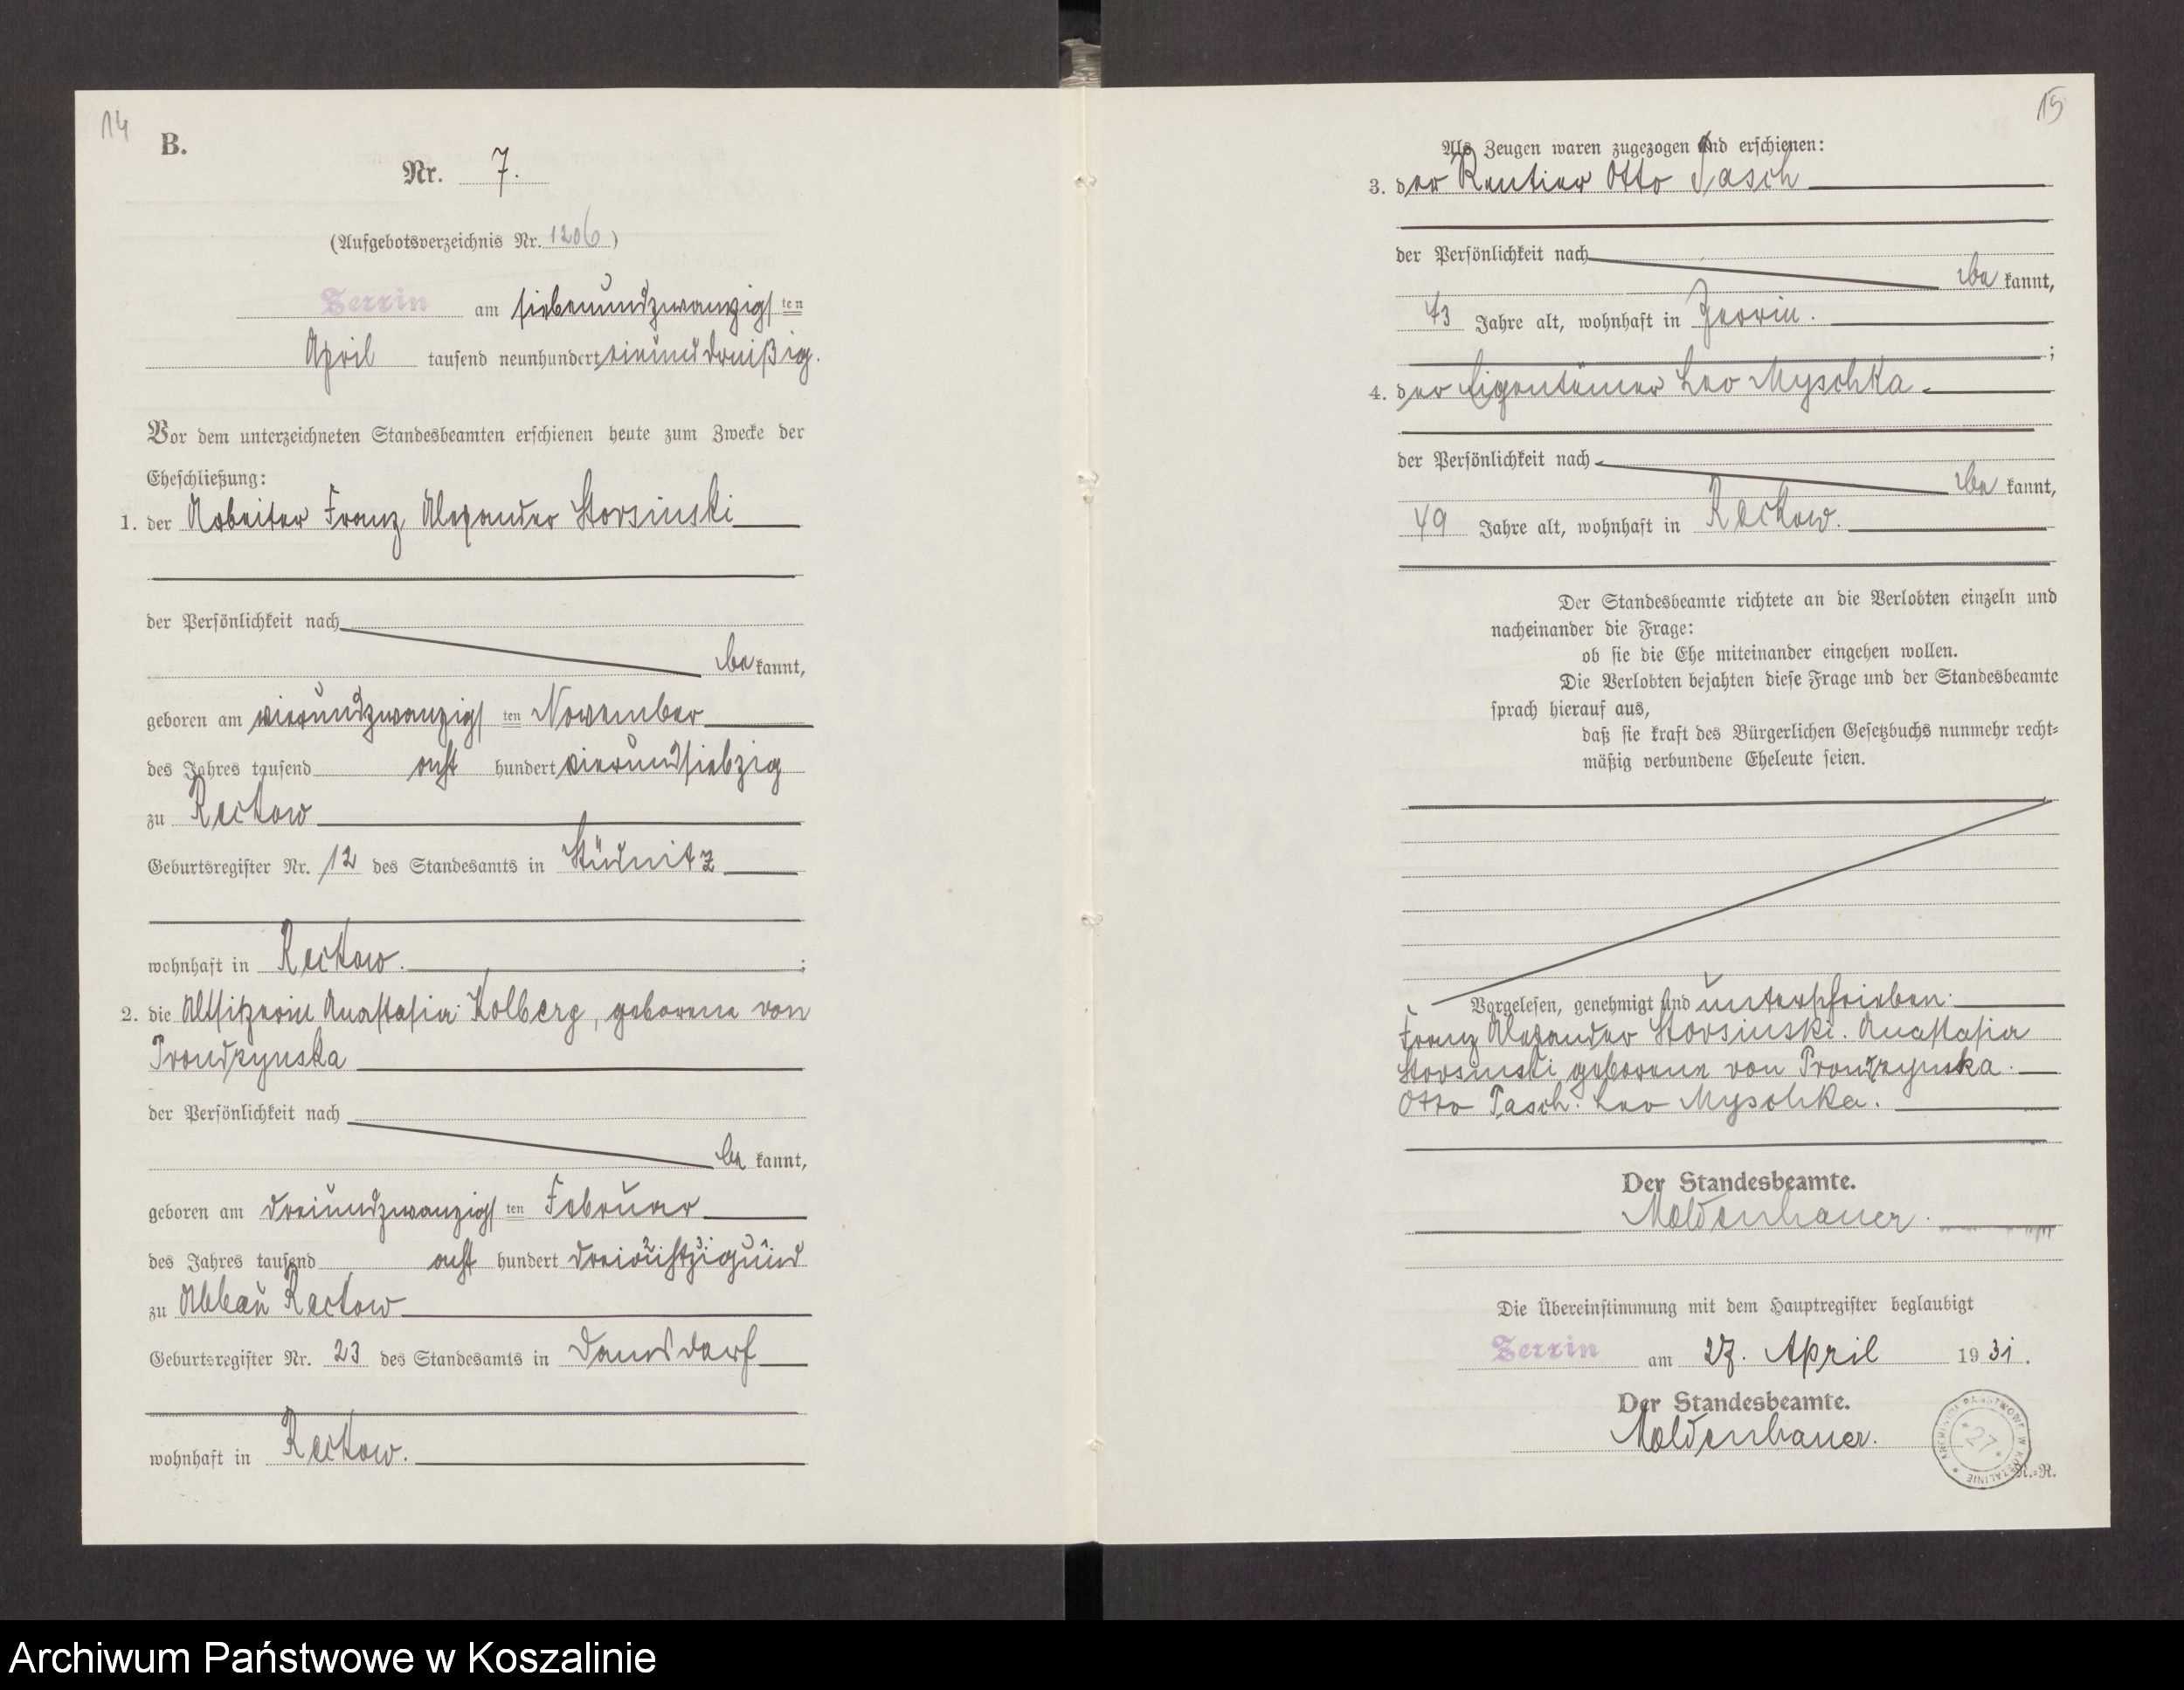 14
B.
Nr. 7.
(Aufgebotsverzeichnis Nr. 1206)
Zerrin am siebenundzwanzigsten
April tausend neunhundert einunddreißig.
Vor dem unterzeichneten Standesbeamten erschienen heute zum Zwecke der
Eheschließung:
1. der Arbeiter Franz Alexander Storsinski
der Persönlichkeit nach
bekannt,
geboren am vierundzwanzigsten November
des Jahres tausend acht hundert vierundsiebzig
zu Reckow
Geburtsregister Nr. 12 des Standesamts in Stüdnitz
wohnhaft in Reckow. ;
2. die Altsitzerin Anastasia Kolberg, geborene von
Prondzynska
der Persönlichkeit nach
bekannt,
geboren am dreiundzwanzigsten Februar
des Jahres tausend acht hundert dreiachtzigund
zu Abbau Reckow
Geburtsregister Nr. 23 des Standesamts in Damsdorf
wohnhaft in Reckow.
15
Als Zeugen waren zugezogen und erschienen:
3. der Rentier Otto Pasch
der Persönlichkeit nach
bekannt,
73 Jahre alt, wohnhaft in Zerrin.
;
4. der Eigentümer Leo Myschka
der Persönlichkeit nach
bekannt,
49 Jahre alt, wohnhaft in Reckow.
Der Standesbeamte richtete an die Verlobten einzeln und
nacheinander die Frage:
ob sie die Ehe miteinander eingehen wollen.
Die Verlobten bejahten diese Frage und der Standesbeamte
sprach hierauf aus,
daß sie kraft des Bürgerlichen Gesetzbuchs nunmehr recht-
mäßig verbundene Eheleute seien.
Vorgelesen, genehmigt und unterschrieben:
Franz Alexander Storsinski. Anastasia
Storsinski geborene von Prondzynska.
Otto Pasch. Leo Myschka.
Der Standesbeamte.
Moldenhauer.
Die Übereinstimmung mit dem Hauptregister beglaubigt
Zerrin am 27. April 1931.
Der Standesbeamte.
Moldenhauer.
ARCHIWUM PAŃSTWOWE W KOSZALINIE
27
R.-R.
Archiwum Państwowe w Koszalinie